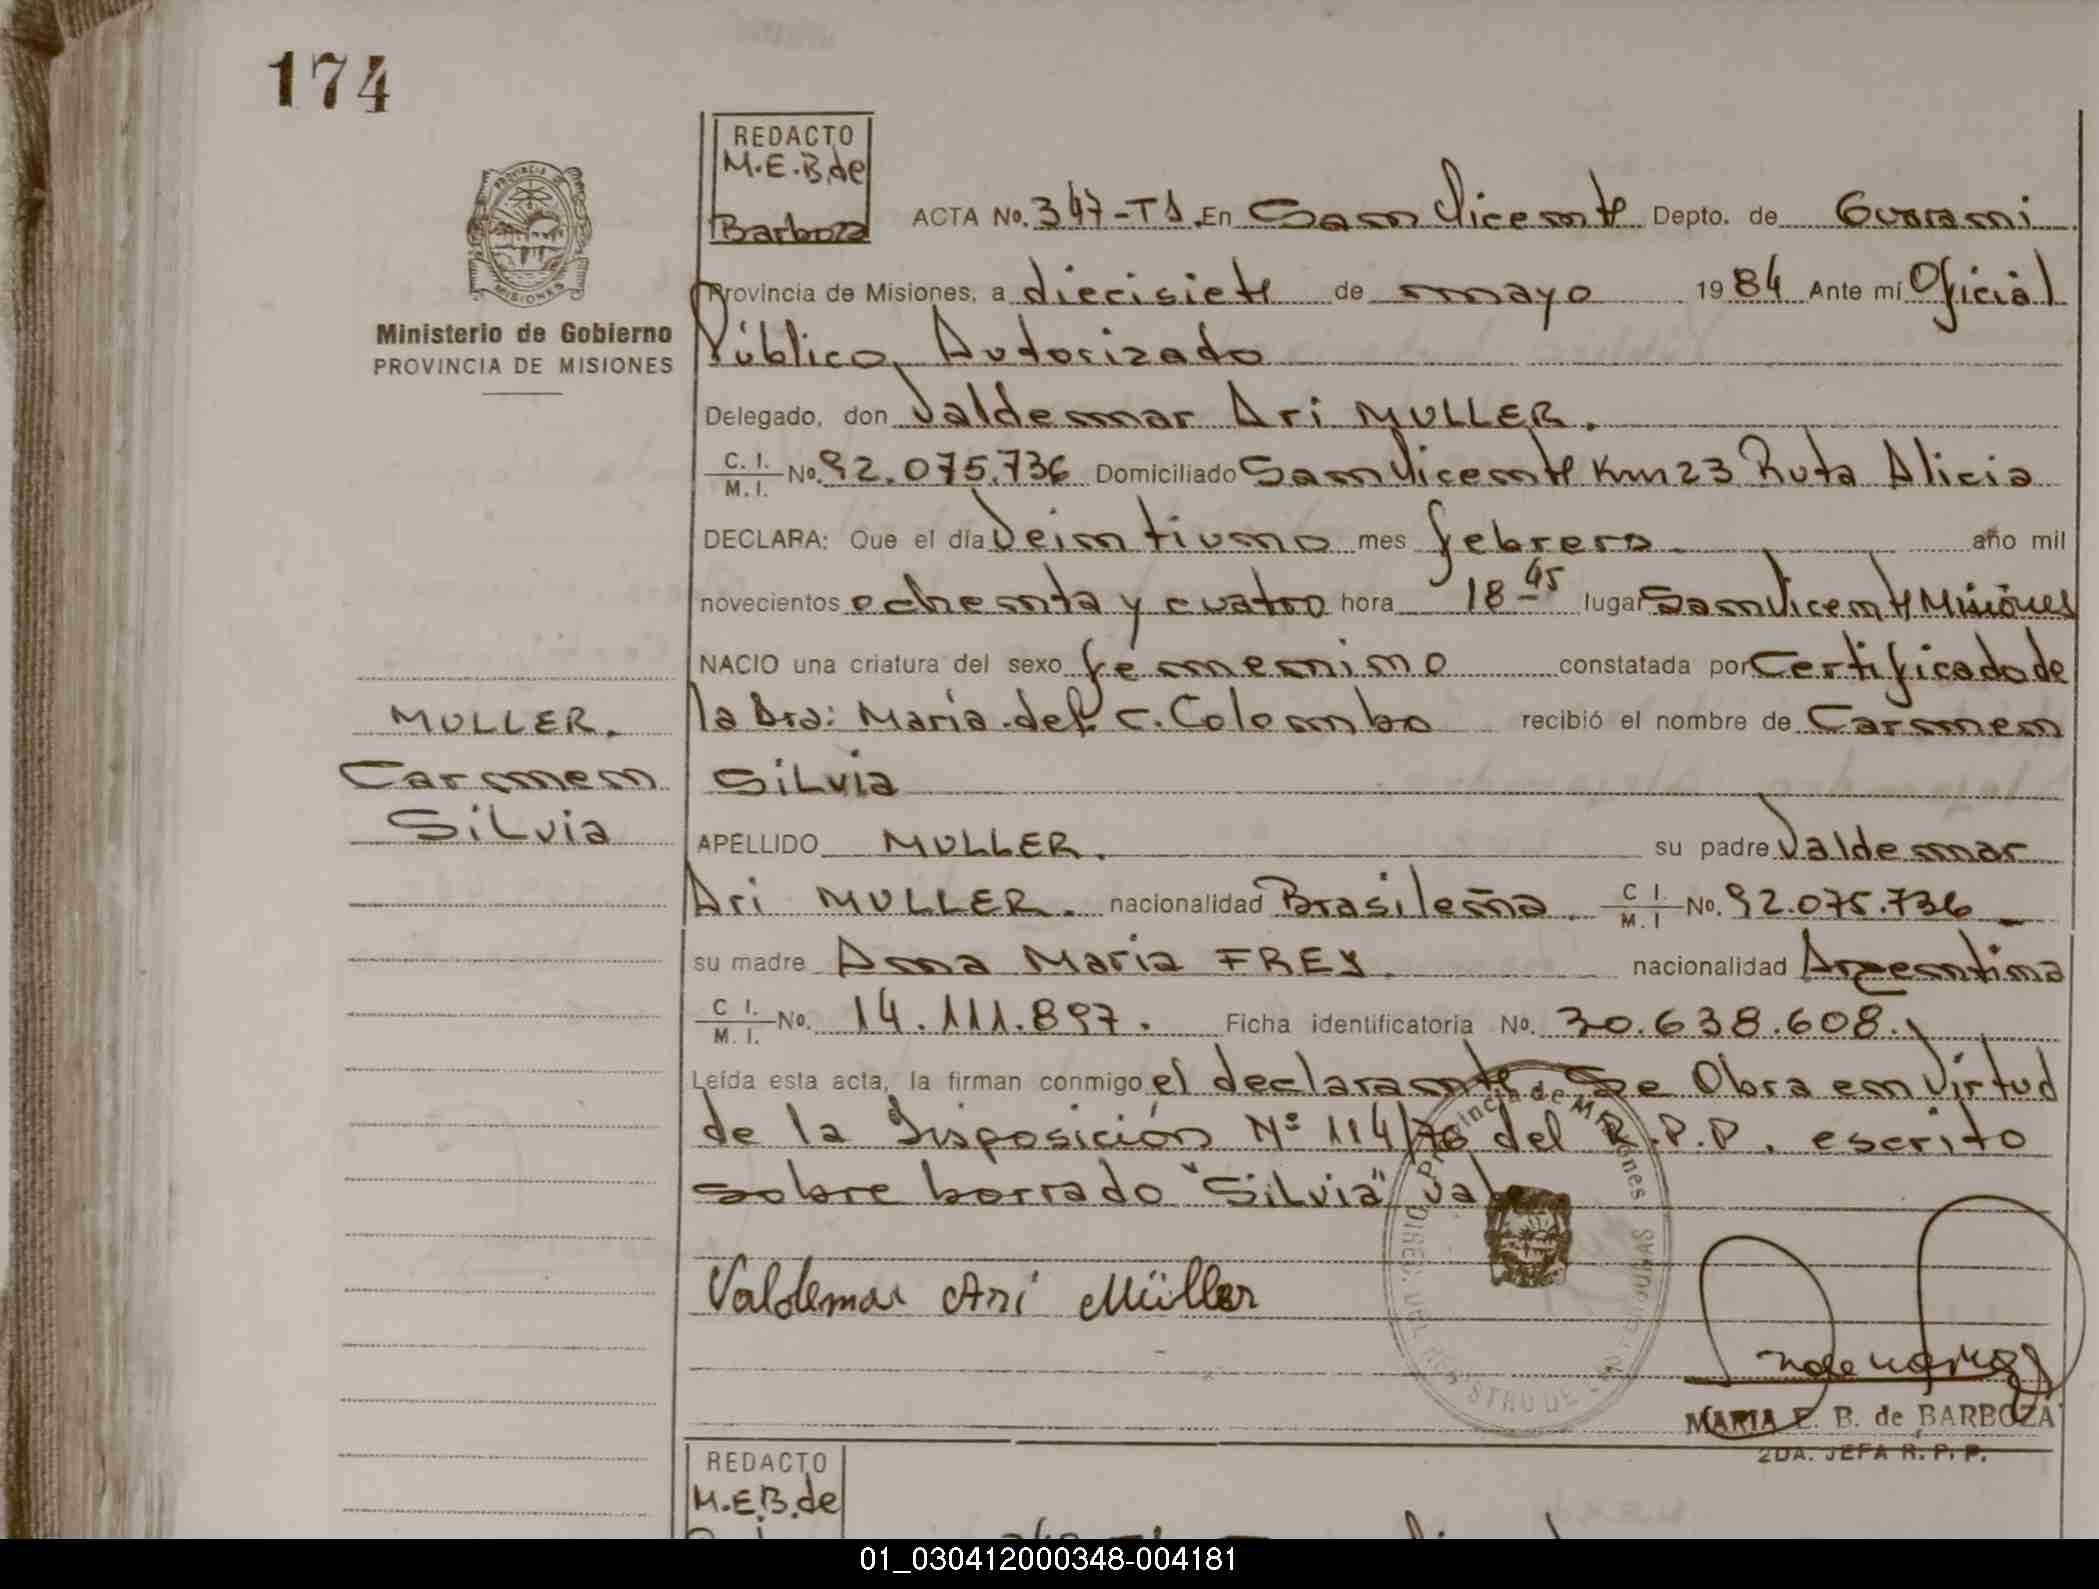 174
REDACTO
M.E.B. de
Barboza
ACTA No. 347-T1. En San Vicente Depto. de Guarani
Provincia de Misiones, a diecisiete de mayo 1984 Ante mí Oficial
Público Autorizado
PROVINCIA DE
MISIONES
Ministerio de Gobierno
PROVINCIA DE MISIONES
Delegado, don Valdemar Ari MULLER.
C. I. / M. I. No. 92.075.736 Domiciliado San Vicente Km 23 Ruta Alicia
DECLARA: Que el día Veintiuno mes febrero año mil
novecientos ochenta y cuatro hora 18-45 lugar San Vicente Misiones
NACIO una criatura del sexo femenino constatada por Certificado de
la Dra: María del C. Colombo recibió el nombre de Carmen
Silvia
MULLER.
Carmen
Silvia
APELLIDO MULLER. su padre Valdemar
Ari MULLER. nacionalidad Brasileña. C I. / M. I No. 92.075.736
su madre Ana María FREY nacionalidad Argentina
C I. / M. I. No. 14.111.897. Ficha identificatoria No. 30.638.608.
Leída esta acta, la firman conmigo el declarante Se Obra en Virtud
de la Disposición Nº 114/76 del R.P.P. escrito
sobre borrado "Silvia" Vale
Provincia de Misiones
Valdemar Ari Müller
MARIA E. B. de BARBOZA
2DA. JEFA R. P. P.
REDACTO
M.E.B. de
01_030412000348-004181